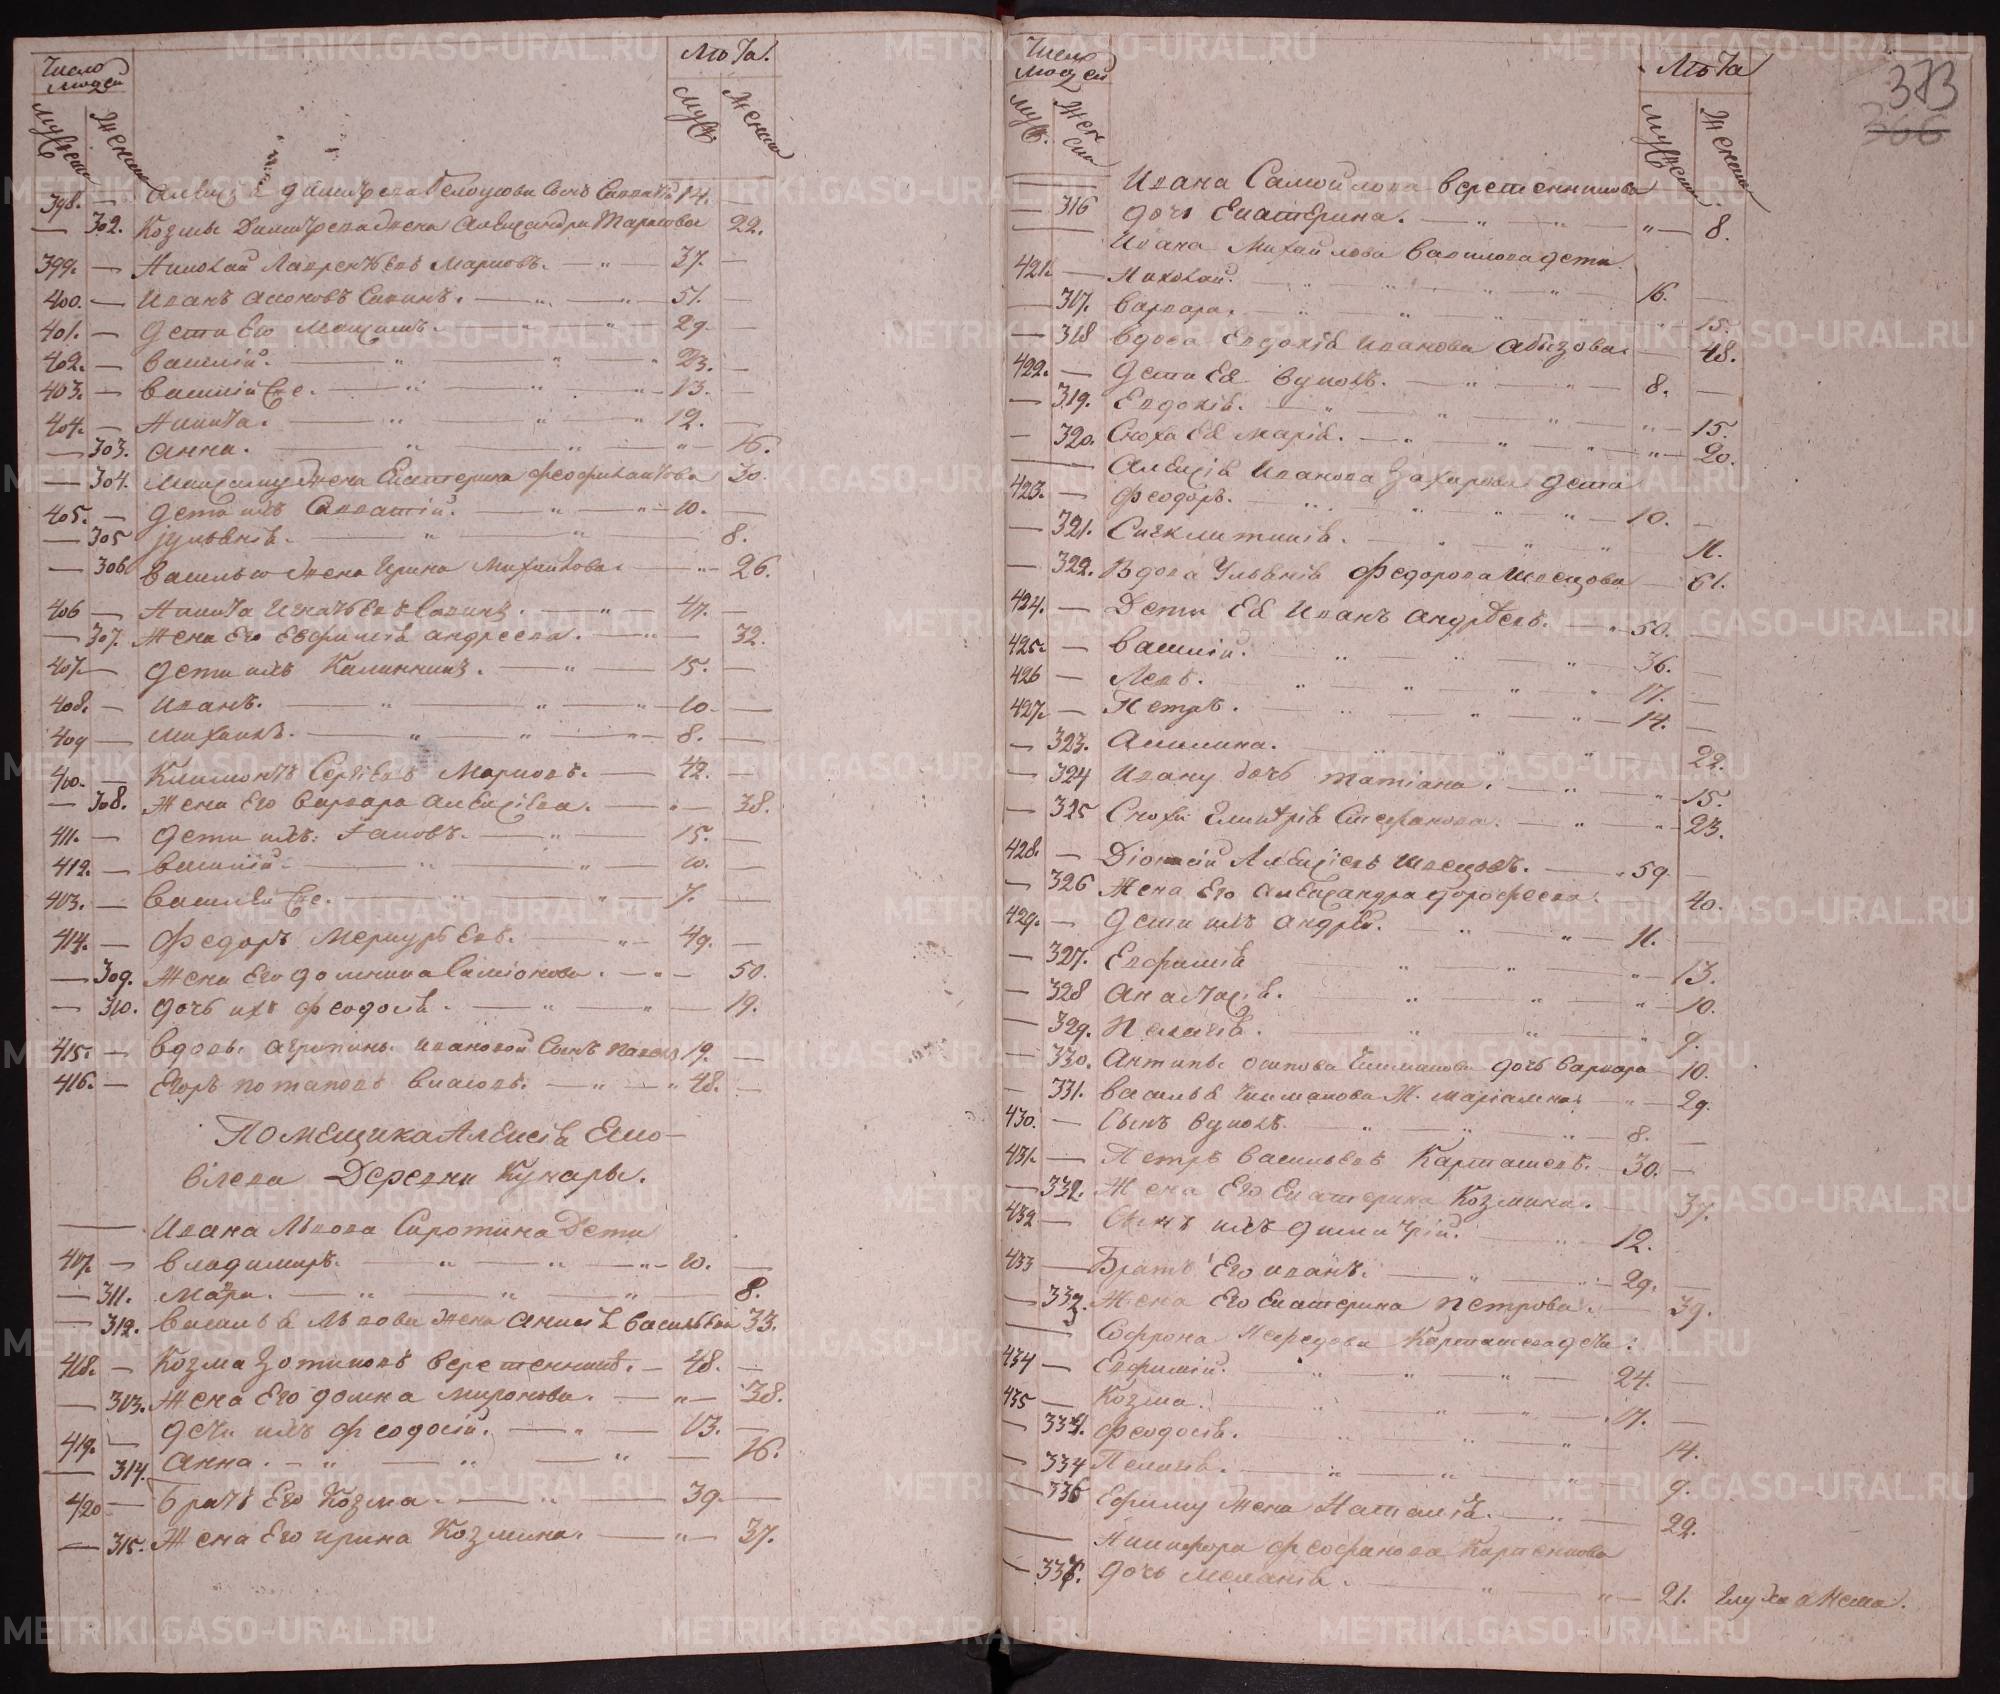 Число людей
Мужеска
Женска
Лѣта.
Муж.
Женска
398. — Алексѣя Димитрева Белоусова Сынъ Савватій 14. —
— 302. Козмы Димитрева Жена Александра Тарасова 22.
399. — Николай Лаврентьевъ Марковъ. — 37. —
400. — Иванъ Савинъ. — 51. —
401. — дети Его Максимъ. — 29. —
402. — Василій. — 23. —
403. — Василій Же. — 13. —
404. — Никита. — 12. —
— 303. Анна. — 16.
— 304. Максиму Жена Екатерина Феофилактова 30.
405. — дети ихъ Савватій. — 10. —
— 305 Іульянія. — 8.
— 306. Василью Жена Ирина Михайлова. — 26.
406 — Никита Игнатьевъ Савинъ. — 47. —
— 307. Жена Его Евфимія Андреева. — 32.
407. — дети ихъ Калинникъ. — 15. —
408. — Иванъ. — 10. —
409 — Михаилъ. — 8. —
410. — Климонтъ Сергѣевъ Марковъ. — 42. —
— 308. Жена Его Варвара Алексѣева. — 38.
411. — дети ихъ: Іаковъ. — 15. —
412. — Василій. — 10. —
413. — Василій Же. — 7. —
414. — Федоръ Меркурьевъ. — 49. —
— 309. Жена Его Домника Симіонова. — 50.
— 310. дочь ихъ Феодосія. — 19.
415. — вдовы Агрипины Ивановой Сынъ Павелъ 19. —
416. — Егоръ Потаповъ Власовъ. — 48. —
Помещика Алексѣя Яко-
влева Деревни Кунары.
— Ивана Львова Сиротина Дети
417. — Владимиръ. — 10. —
— 311. Марѳа. — 8.
— 312. Василья Львова Жена Анисія Васильева 33.
418. — Козма Зотиковъ Веретенниковъ. — 48. —
— 313. Жена Его Домна Миронова. — 38.
419. — дети ихъ Феодосій. — 13. —
— 314. Анна. — 16.
420 — братъ Его Козма. — 39. —
— 315. Жена Его Ирина Козмина. — 37.
Число людей
Муж.
Женска
Лѣта
Мужеска
Женска
373
366
— Ивана Самойлова Веретенникова
— 316 дочь Екатерина. — 8.
— Ивана Михайлова Вавилова дети.
421. — Николай. — 16. —
— 317. Варвара. — 15.
— 318 вдова Евдокія Иванова Абызова. — 48.
422. — дети Ея Вуколъ. — 8. —
— 319. Евдокія. — 15.
— 320. Сноха Ея Марія. — 20.
— Алексѣя Иванова Захарова дети
423. — Феодоръ. — 10. —
— 321. Сигклитикія. — 11.
— 322. Вдова Ульянія Федорова Швецова — 61.
424. — Дети Ея Иванъ Андрѣевъ. — 50. —
425. — Василій. — 36. —
426 — Левъ. — 17. —
427. — Петръ. — 14. —
— 323. Акилина. — 22.
— 324 Ивану дочь Татіана. — 15.
— 325 Сноха Стефанова. — 23.
428. — Діонисій Алексѣевъ Швецовъ. — 59 —
— 326 Жена Его Александра Дорофеева. — 40.
429. — дети ихъ Андрей. — 11. —
— 327. Евфимія — 13.
— 328 Анастасія. — 10.
— 329. Пелагія. — 9.
— 330. Антипы Осипова Чикманова дочь Варвара — 10.
— 331. Василья Чикманова Ж. Маріамна. — 29.
430. — Сынъ Вуколъ. — 8. —
431. — Петръ Васильевъ Карташевъ. — 30. —
— 332. Жена Его Екатерина Козмина. — 37.
432 — Сынъ ихъ Димитрій. — 12. —
433 — Братъ Его Иванъ. — 29. —
— 333. Жена Его Екатерина Петрова. — 39.
— Софрона Меѳодова Карташева дети:
434 — Евфимій. — 24. —
435 — Козма. — 17. —
— 334. Феодосія. — 14.
— 334 Пелагія. — 9.
— 336 Ефиму Жена Наталія. — 22.
— Никифора Феофанова Карпенкова
— 337. дочь Меланія. — 21. Глуха и Нема.
METRIKI.GASO-URAL.RU